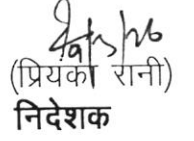 (प्रियंका रानी)
निदेशक